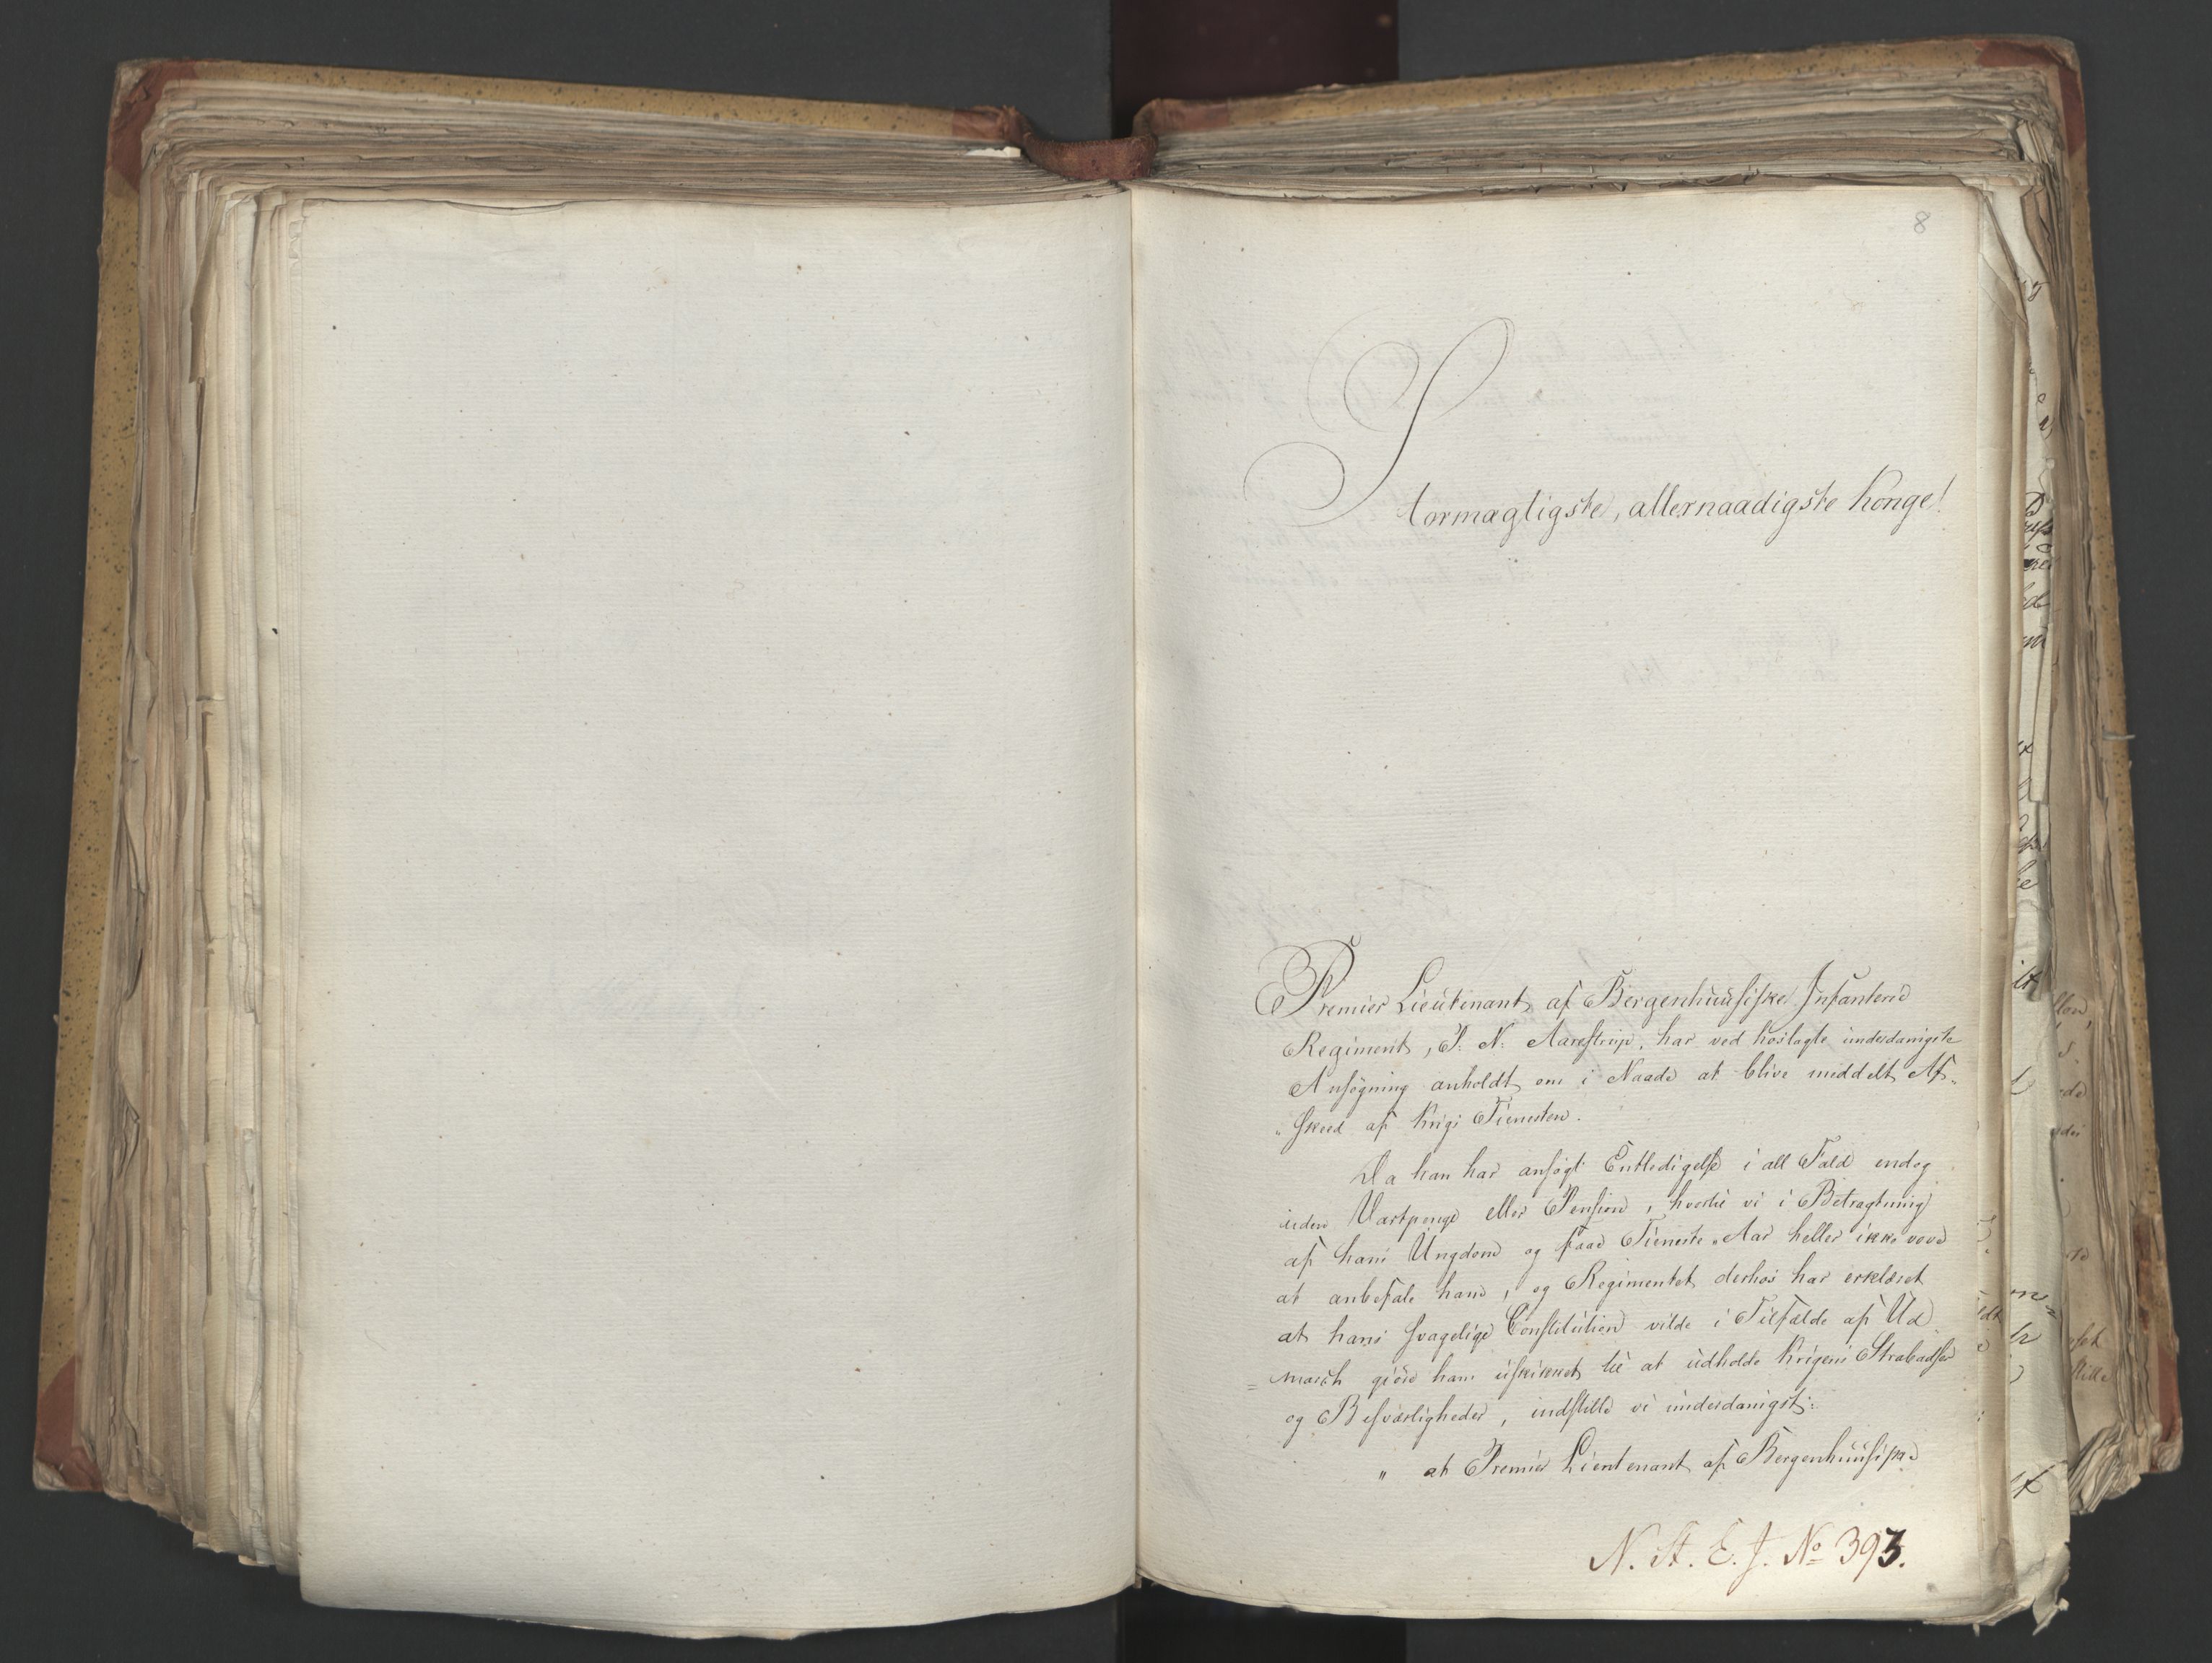 8
Stormægtigste, allernaadigste Konge!
Premier Lieutenant af Bergenhuusiske Infanterie
Regiment, P: N: Aarestrup, har ved hoslagte underdanigste
Ansøgning anholdt om i Naade at blive meddelt Af„
„skeed af Krigs Tienesten.
Da han har ansøgt Entledigelse i all Fald endog
uden Vartpenge eller Pension, hvortil vi i Betragtning
af hans Ungdom og faae Tieneste„Aar heller ikke vove
at anbefale ham, og Regimentet derhos har erklæret
at hans svagelige Constitution vilde i Tilfælde af Ud
= march giøre ham uskikket til at udholde Krigens Strabadser
og Besværligheder, indstille vi underdanigst:
„ at Premier Lieutenant af Bergenhuusiske
N. St. E. J. No 393.